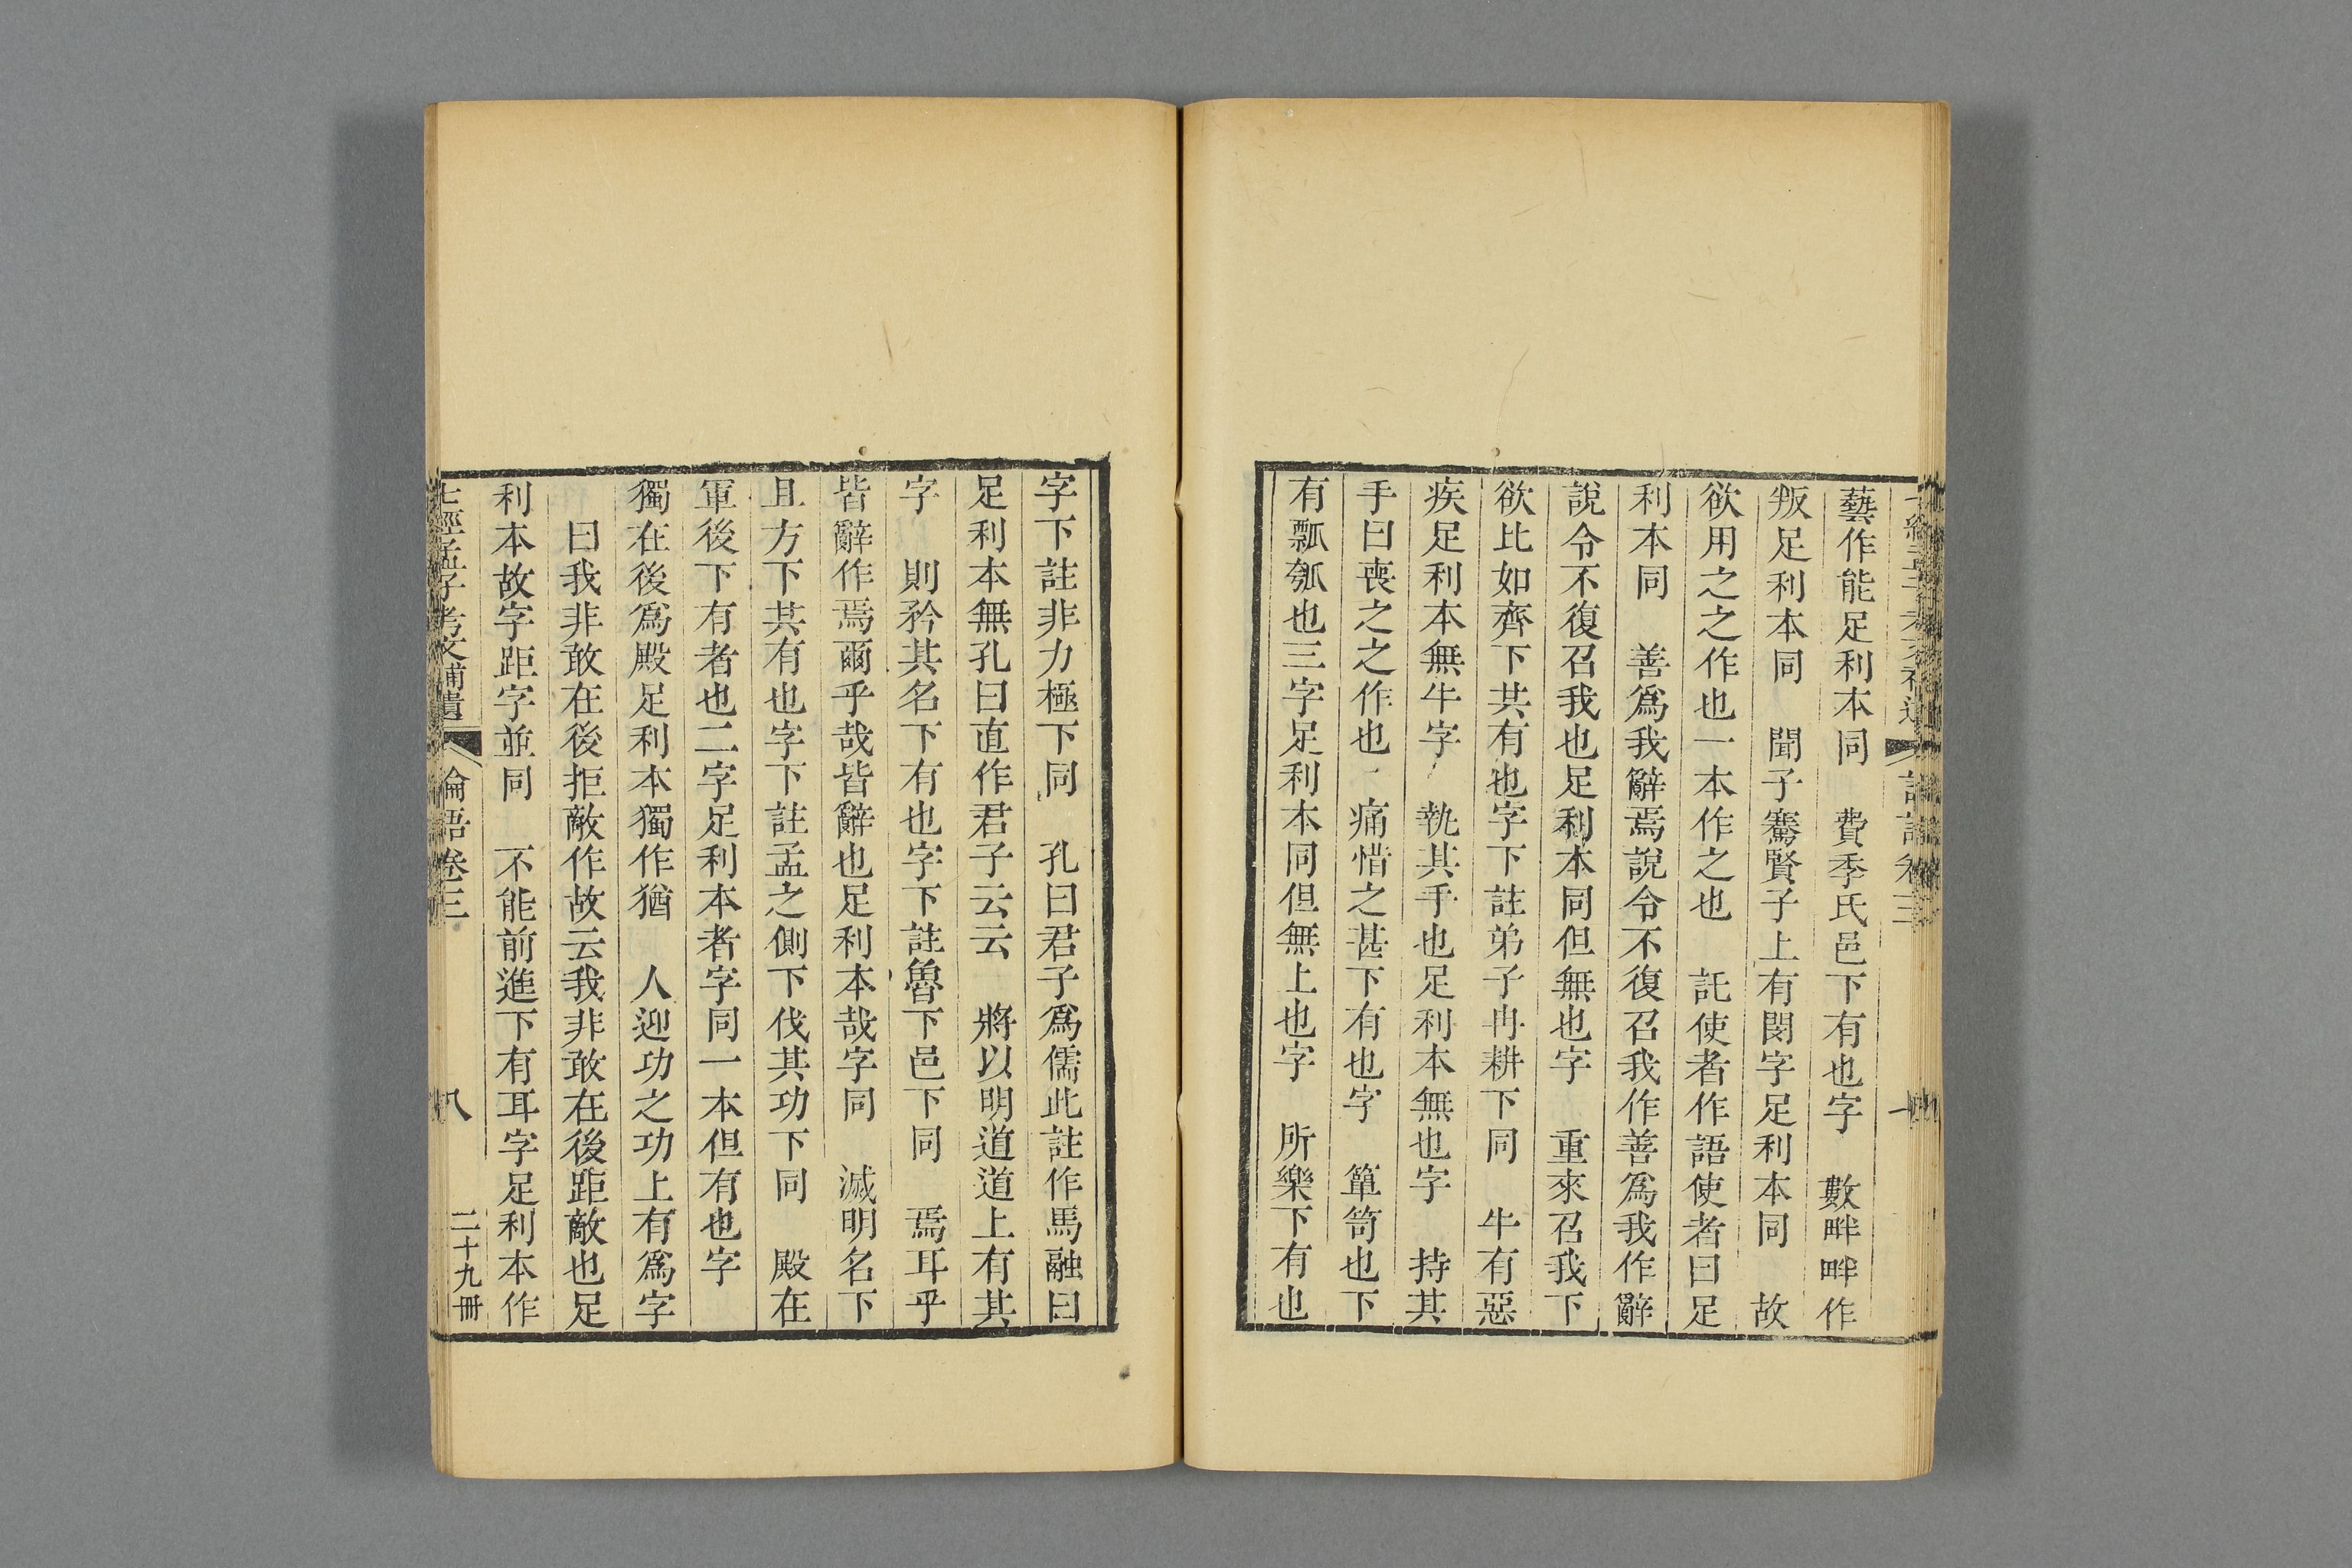 藝作能足利本同　費季氏邑下有也字　數畔畔作
叛足利本同　聞子騫賢子上有閔字足利本同　故
欲用之之作也一本作之也　託使者作語使者曰足
利本同　善爲我辭焉說令不復召我作善爲我作辭
說令不復召我也足利本同但無也字　重來召我下
欲比如齊下共有也字下註弟子冉耕下同　牛有惡
疾足利本無牛字　執其手也足利本無也字　持其
手曰喪之之作也　痛惜之甚下有也字　簞笥也下
有瓢瓠也三字足利本同但無上也字　所樂下有也
字下註非力極下同　孔曰君子爲儒此註作馬融曰
足利本無孔曰直作君子云云　將以明道道上有其
字　則矜其名下有也字下註魯下邑下同　焉耳乎
皆辭作焉爾乎哉皆辭也足利本哉字同　滅明名下
且方下共有也字下註孟之側下伐其功下同　殿在
軍後下有者也二字足利本者字同一本但有也字
獨在後爲殿足利本獨作猶　人迎功之功上有爲字
曰我非敢在後拒敵作故云我非敢在後距敵也足
利本故字距字並同　不能前進下有耳字足利本作
七經孟子考文補遺　論語卷三　八　二十九冊